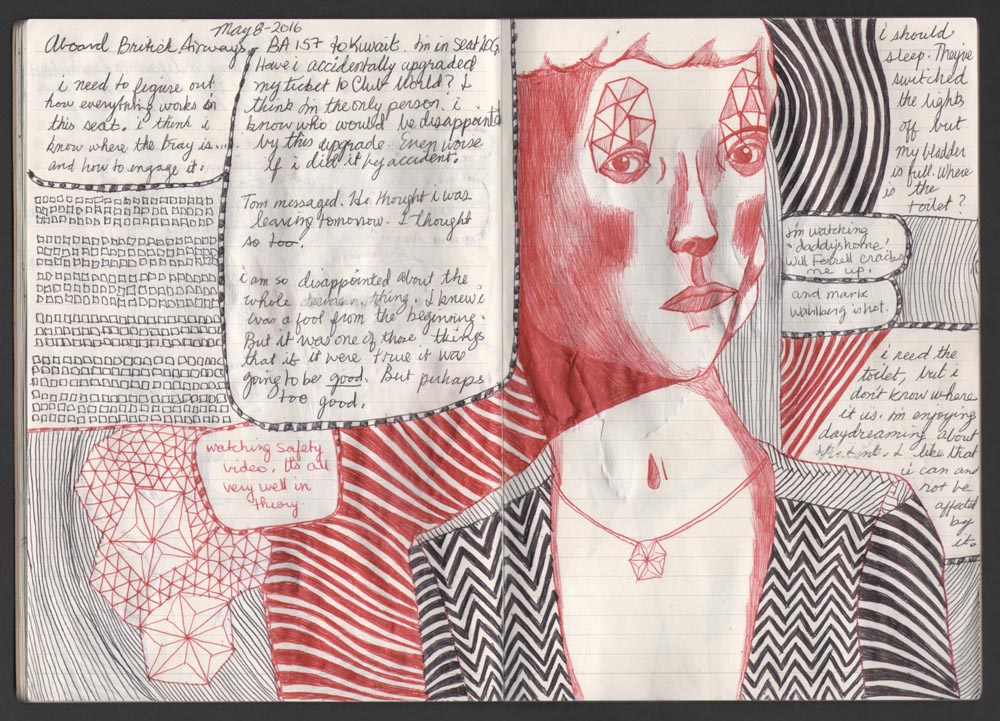 May 8-2016
Aboard British Airways, BA 157 to Kuwait. I'm in Seat 10G
i need to figure out
how everything works in
this seat. i think i
know where the tray is...
and how to engage it.
Have i accidentally upgraded
my ticket to Club World? I
think I'm the only person. i
know who would be disappointed
by this upgrade. Even worse
if i did it by accident.
Tom messaged. He thought i was
leaving tomorrow. I thought
so too.
i am so disappointed about the
whole thing. I knew i
was a fool from the beginning.
But it was one of those things
that if it were true it was
going to be good. But perhaps
too good.
watching Safety
video. It's all
very well in
theory.
i should
sleep. They've
switched
the lights
off but
my bladder
is full. Where
is the
toilet?
I'm watching
'daddy's home'
Will Ferrell cracks
me up.
and mark
Wahlberg is hot.
i need the
toilet, but i
don't know where
it is. I'm enjoying
daydreaming about
I like that
i can an
not be
affected
by
it.